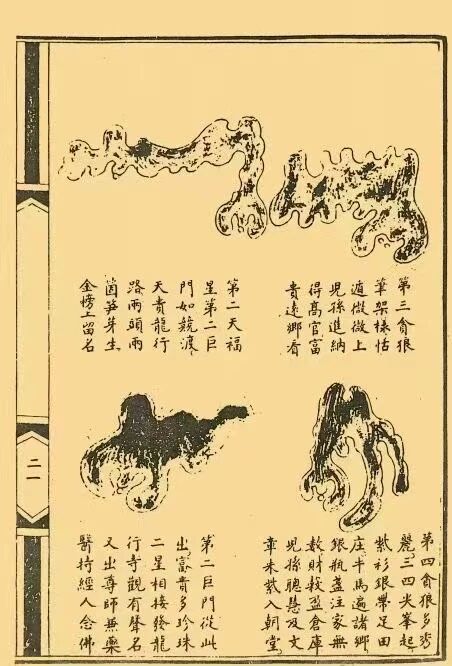 第三貪狼
筆架樣怙
適微微上
児孫進納
得高官富
貴遠鄉看
第二天福
星第二巨
門如競渡
天貴龍行
路兩頭兩
箇笋芽生
金榜上留名
第四貪狼多秀
麗三四尖峯起
紫衫銀帶足田
庄牛馬遍諸鄉
銀瓶盞注家無
数財穀盈倉庫
児孫聰慧及文
章朱紫入朝堂
第二巨門從此
出富貴多珍珠
二星相接發龍
行寺觀有聲名
又出尊師無藥
醫持經人念佛
二一